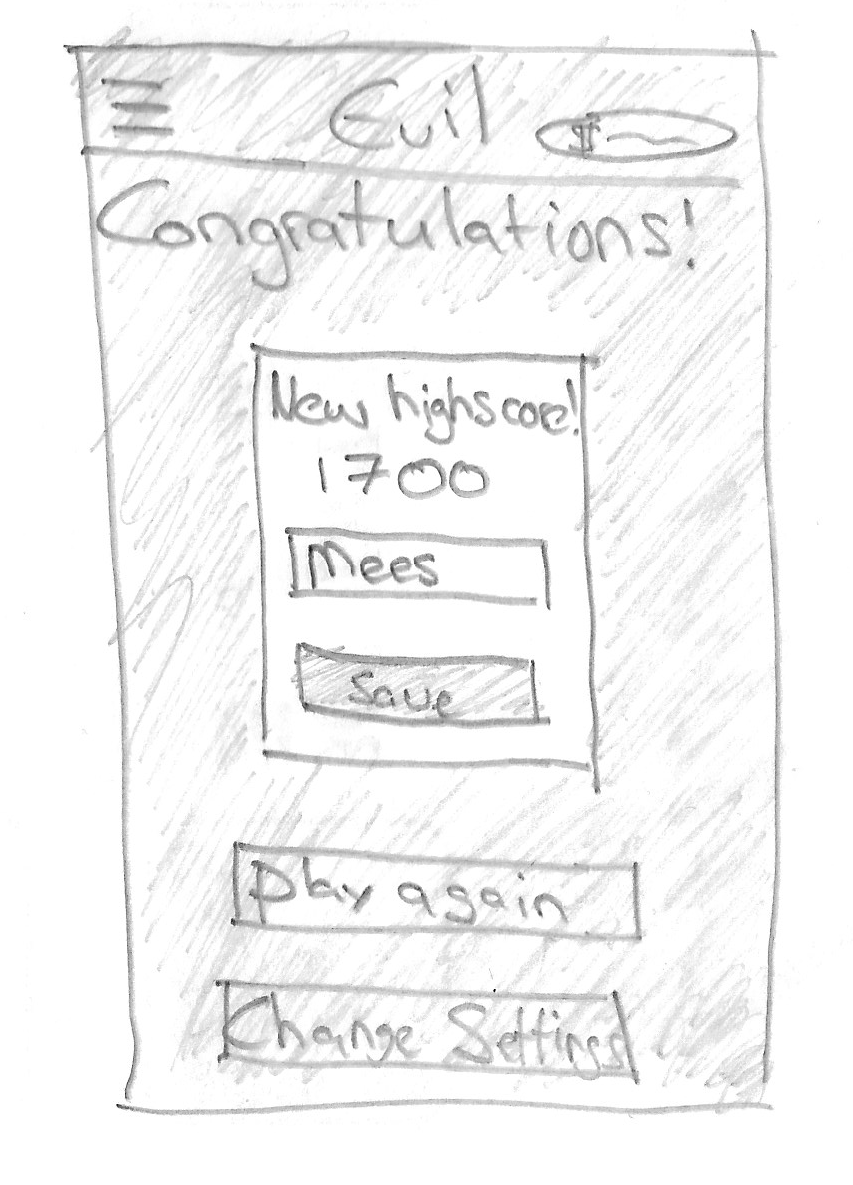 Evil $
Congratulations!
New highscore!
1700
Mees
Save
Play again
Change Settings